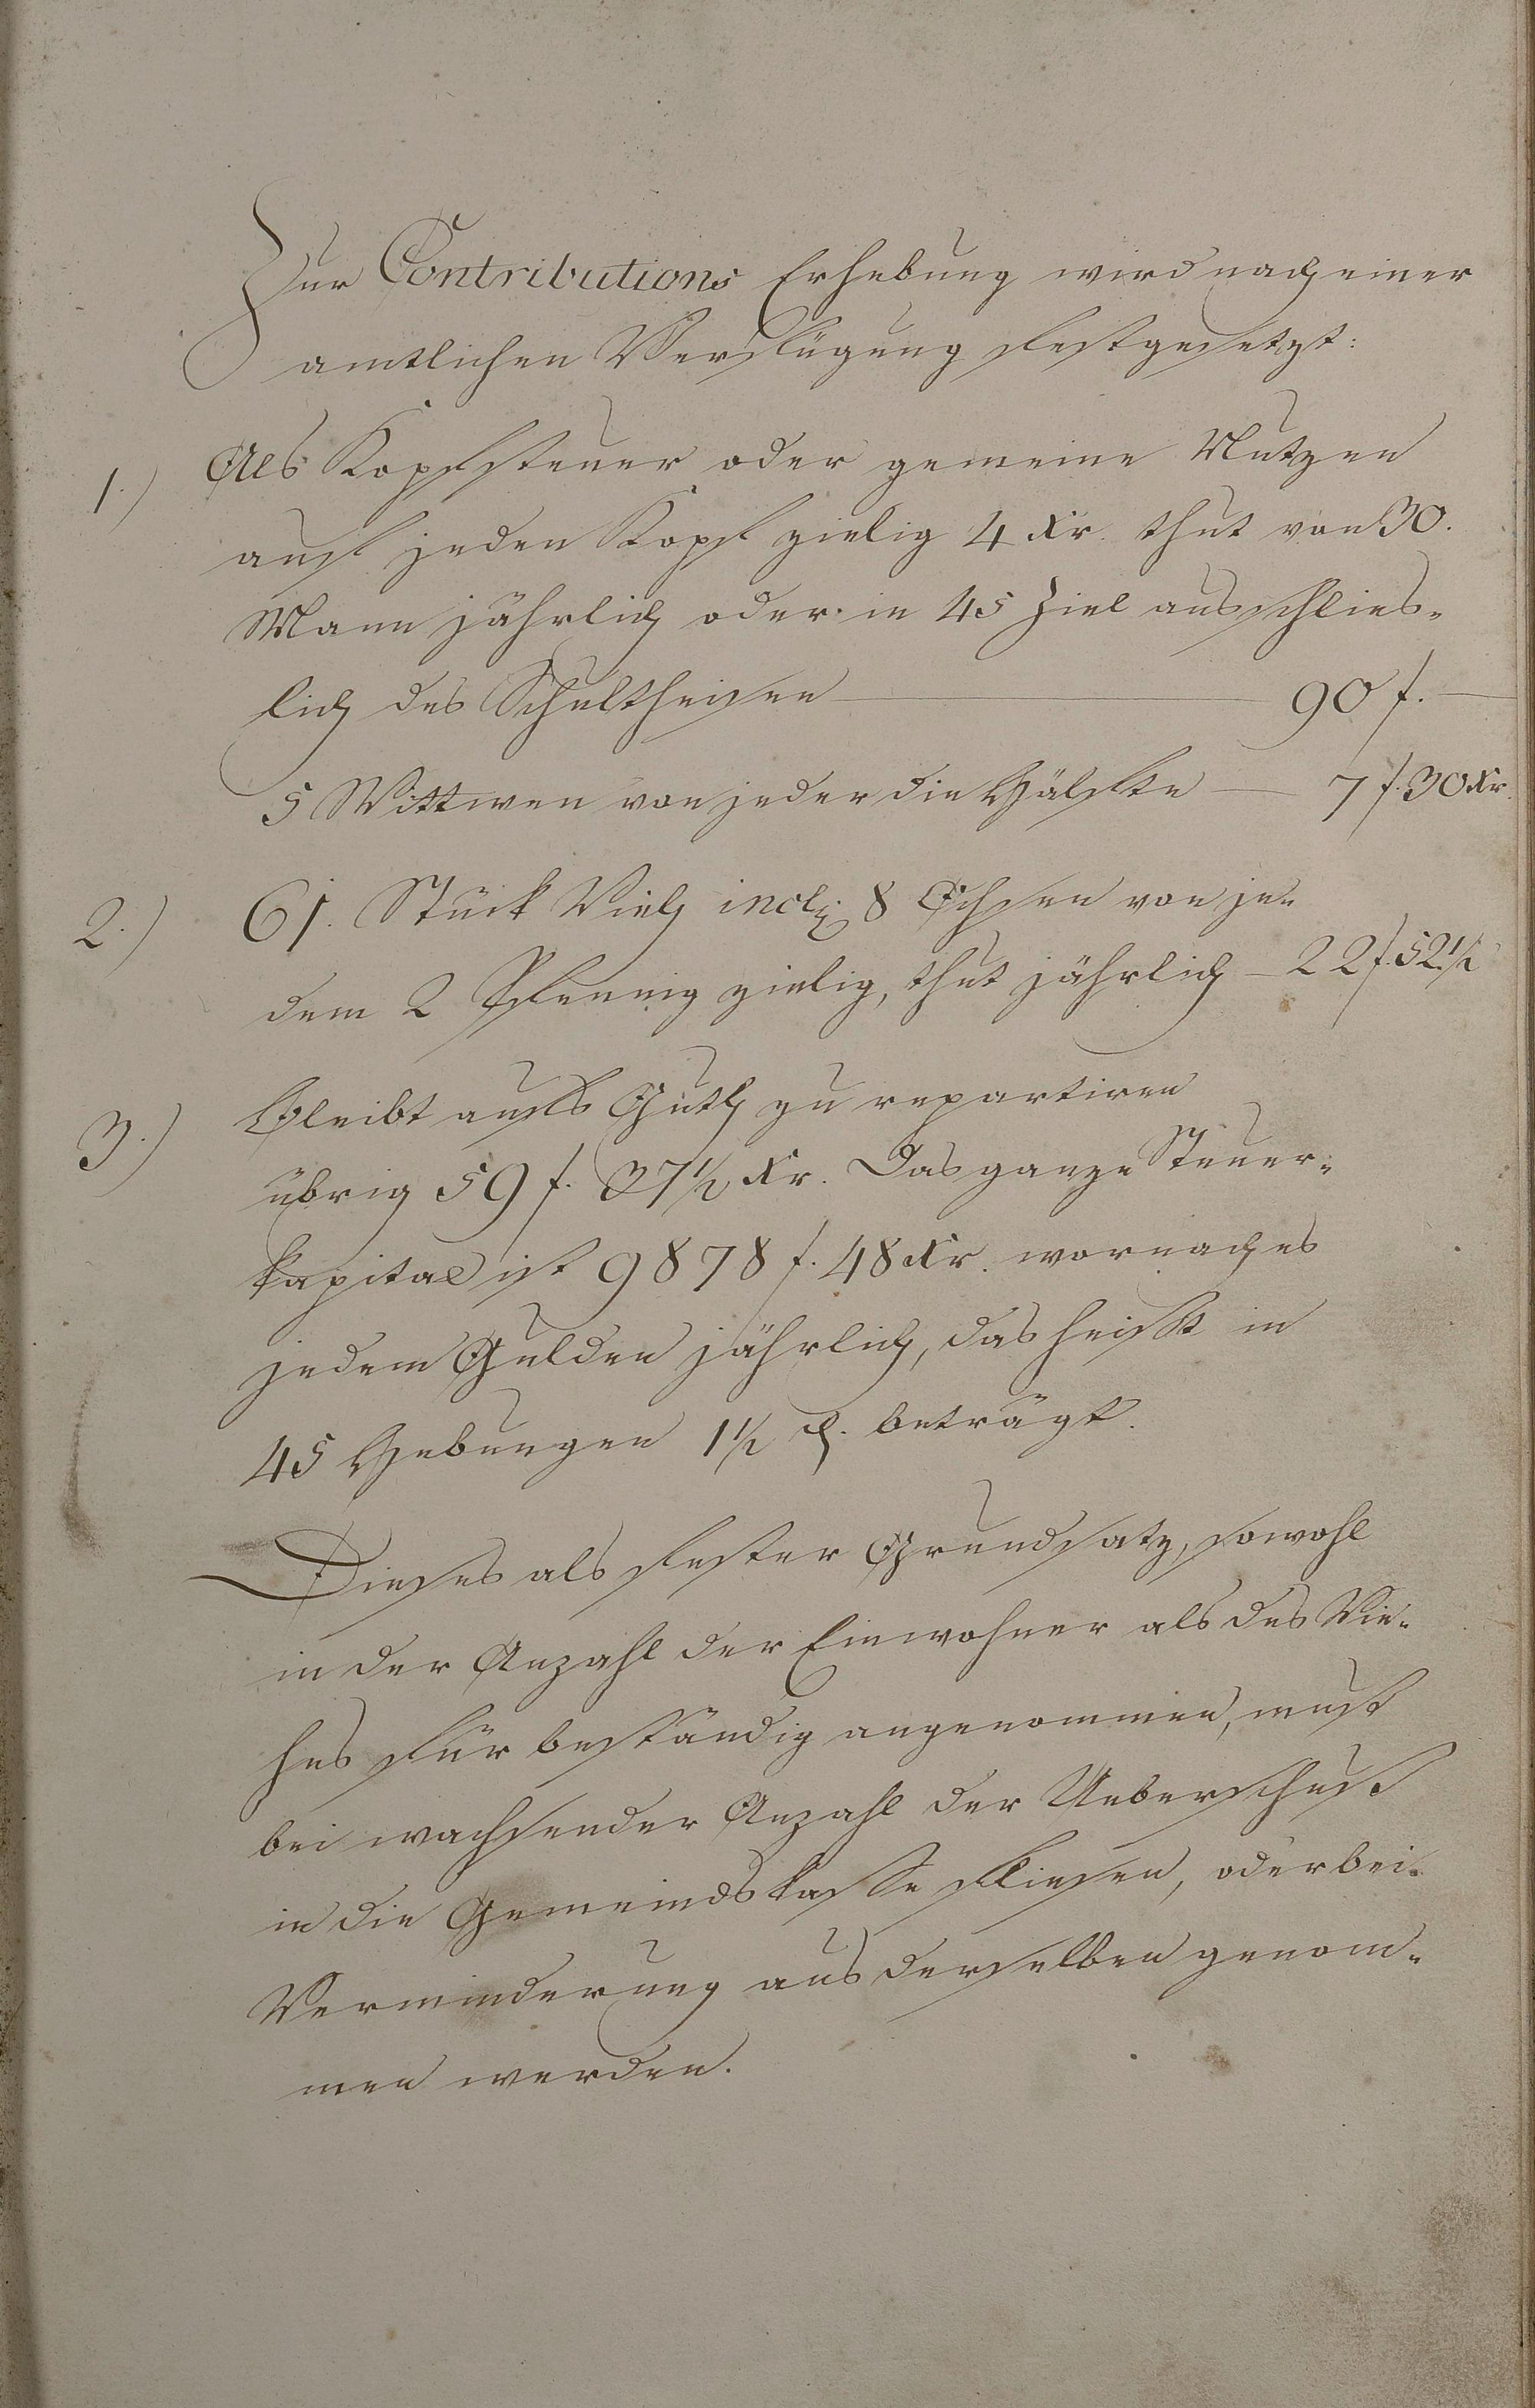 Zur Contributions Erhebung wird nach einer
amtlichen Verfügung festgesetzt:
1.) Als Kopfsteuer oder gemeine Nutzen
auf jeden Kopf zielig 4 Xr. thut von 30.
Mann jährlich oder in 45 Ziel ausschlies-
lich des Schultheisen — 90 f. —
5 Wittwen von jeder die Hälfte — 7 f. 30 Xr.
2.) 61. Stück Vieh incl: 8 Ochsen von je-
dem 2 Pfennig zielig, thut jährlich — 22 f. 52 1/2
3.) Bleibt aufs Guth zu repartiren
übrig 59 f. 37 1/2 Xr. Das ganze Steuer-
kapital ist 9878 f. 48 Xr. wornach es
jedem Gulden jährlich, das heißt in
45 Hebungen 1 1/2 d. beträgt.
Dieses als fester Grundsatz, sowohl
in der Anzahl der Einwohner als des Vie-
hes für beständig angenommen, muß
bei wachsender Anzahl der Ueberschuß
in die Gemeindskasse fliesen, oder bei
Verminderung aus derselben genom-
men werden.